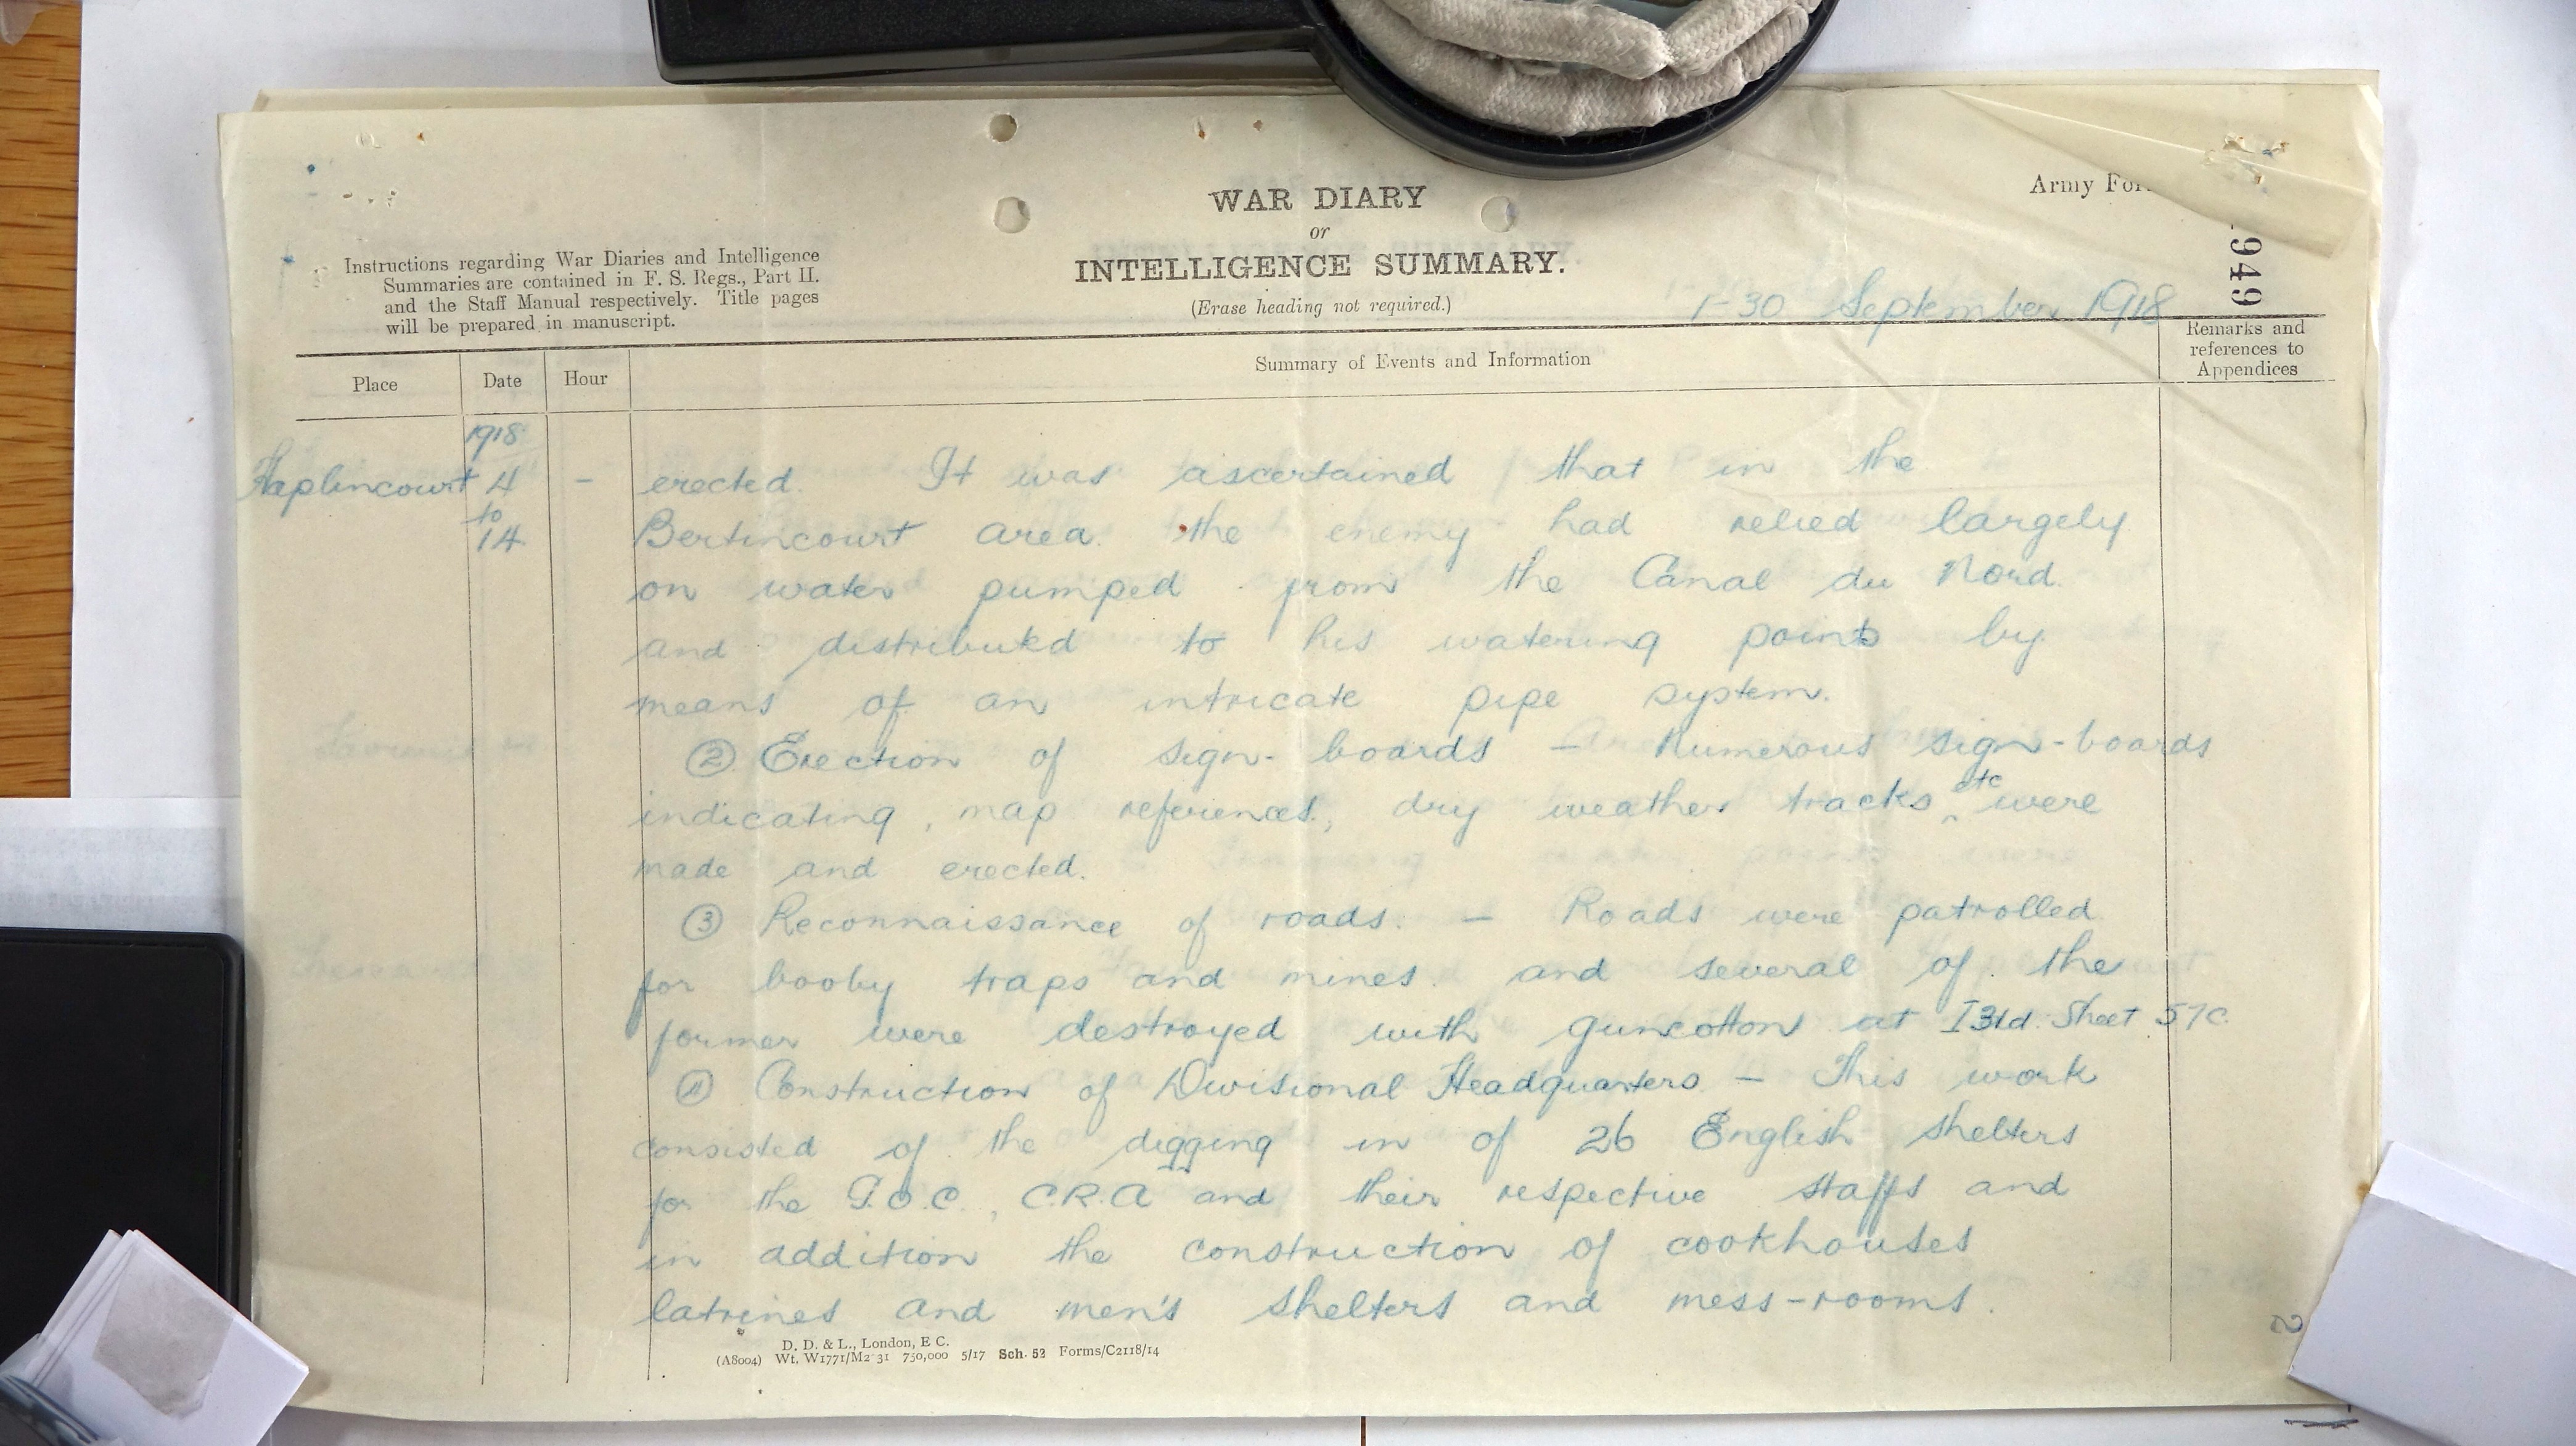 WAR DIARY
or
INTELLIGENCE SUMMARY.
(Erase heading not required.)
Army For
949
Instructions regarding War Diaries and Intelligence
Summaries are contained in F. S. Regs., Part II.
and the Staff Manual respectively. Title pages
will be prepared in manuscript.
1-30 September 1918
Place Date Hour Summary of Events and Information Remarks and references to Appendices
1918
Haplincourt 4 - erected. It was ascertained that in the
to
14 Bertincourt area. the enemy had relied largely
on water pumped from the Canal du Nord.
and distributed to his watering points by
means of an intricate pipe system.
② Erection of sign-boards - Numerous sign-boards
indicating, map references, dry weather tracks, etc were
made and erected.
③ Reconnaissance of roads. - Roads were patrolled
for booby traps and mines. and several of the
former were destroyed with guncotton at I31d. Sheet 57C.
④ Construction of Divisional Headquarters - This work
consisted of the digging in of 26 English shelters
for the G.O.C., C.R.A and their respective staffs and
in addition the construction of cookhouses
latrines and men's shelters and mess-rooms.
D. D. & L., London, E C.
(A8004) Wt. W1771/M2 31 750,000 5/17 Sch. 52 Forms/C2118/14
2